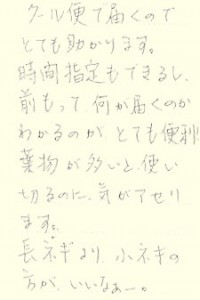 クール便で届くので
とても助かります。
時間指定もできるし、
前もって何が届くのか
わかるのが、とても便利!
葉物が多いと、使い
切るのに、気がアセリ
ます。
長ネギより、小ネギの
方が、いいなぁー。